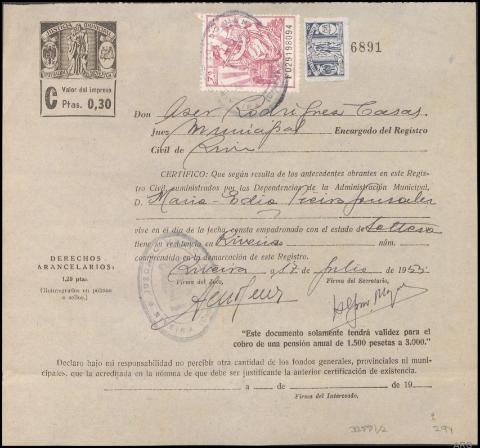 JUSTICIA MUNICIPAL
C Valor del impreso
Ptas. 0,30
F029198094
6891
Don Aser Rodríguez Casas,
Juez Municipal Encargado del Registro
Civil de
CERTIFICO: Que según resulta de los antecedentes obrantes en este Regis-
tro Civil suministrados por las Dependencias de la Administración Municipal,
D. María
vive en el día de la fecha consta empadronado con el estado de Soltera
tiene su residencia en Riveira núm.
comprendido en la demarcación de este Registro.
Riveira a 17 de Julio de 1953.
Firma del Juez, Firma del Secretario,
DERECHOS
ARANCELARIOS:
1,20 ptas.
(Reintegrados en pólizas
o sellos.)
"Este documento solamente tendrá validez para el
cobro de una pensión anual de 1.500 pesetas a 3.000."
Declaro bajo mi responsabilidad no percibir otra cantidad de los fondos generales, provinciales ni muni-
cipales, que la acreditada en la nómina de que debe ser justificante la anterior certificación de existencia.
a de de 19
Firma del Interesado.
294